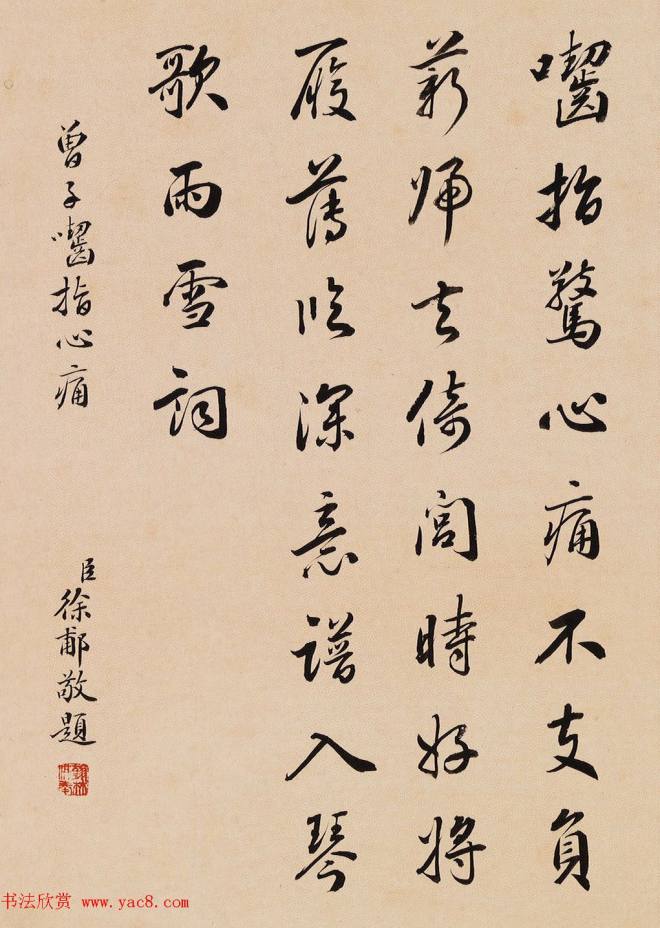 嚙指驚心痛不支負
薪帰去倚閭時好將
履薄臨深意譜入琴
歌雨雪詞
曾子嚙指心痛
臣徐郙敬題
书法欣赏 www.yac8.com